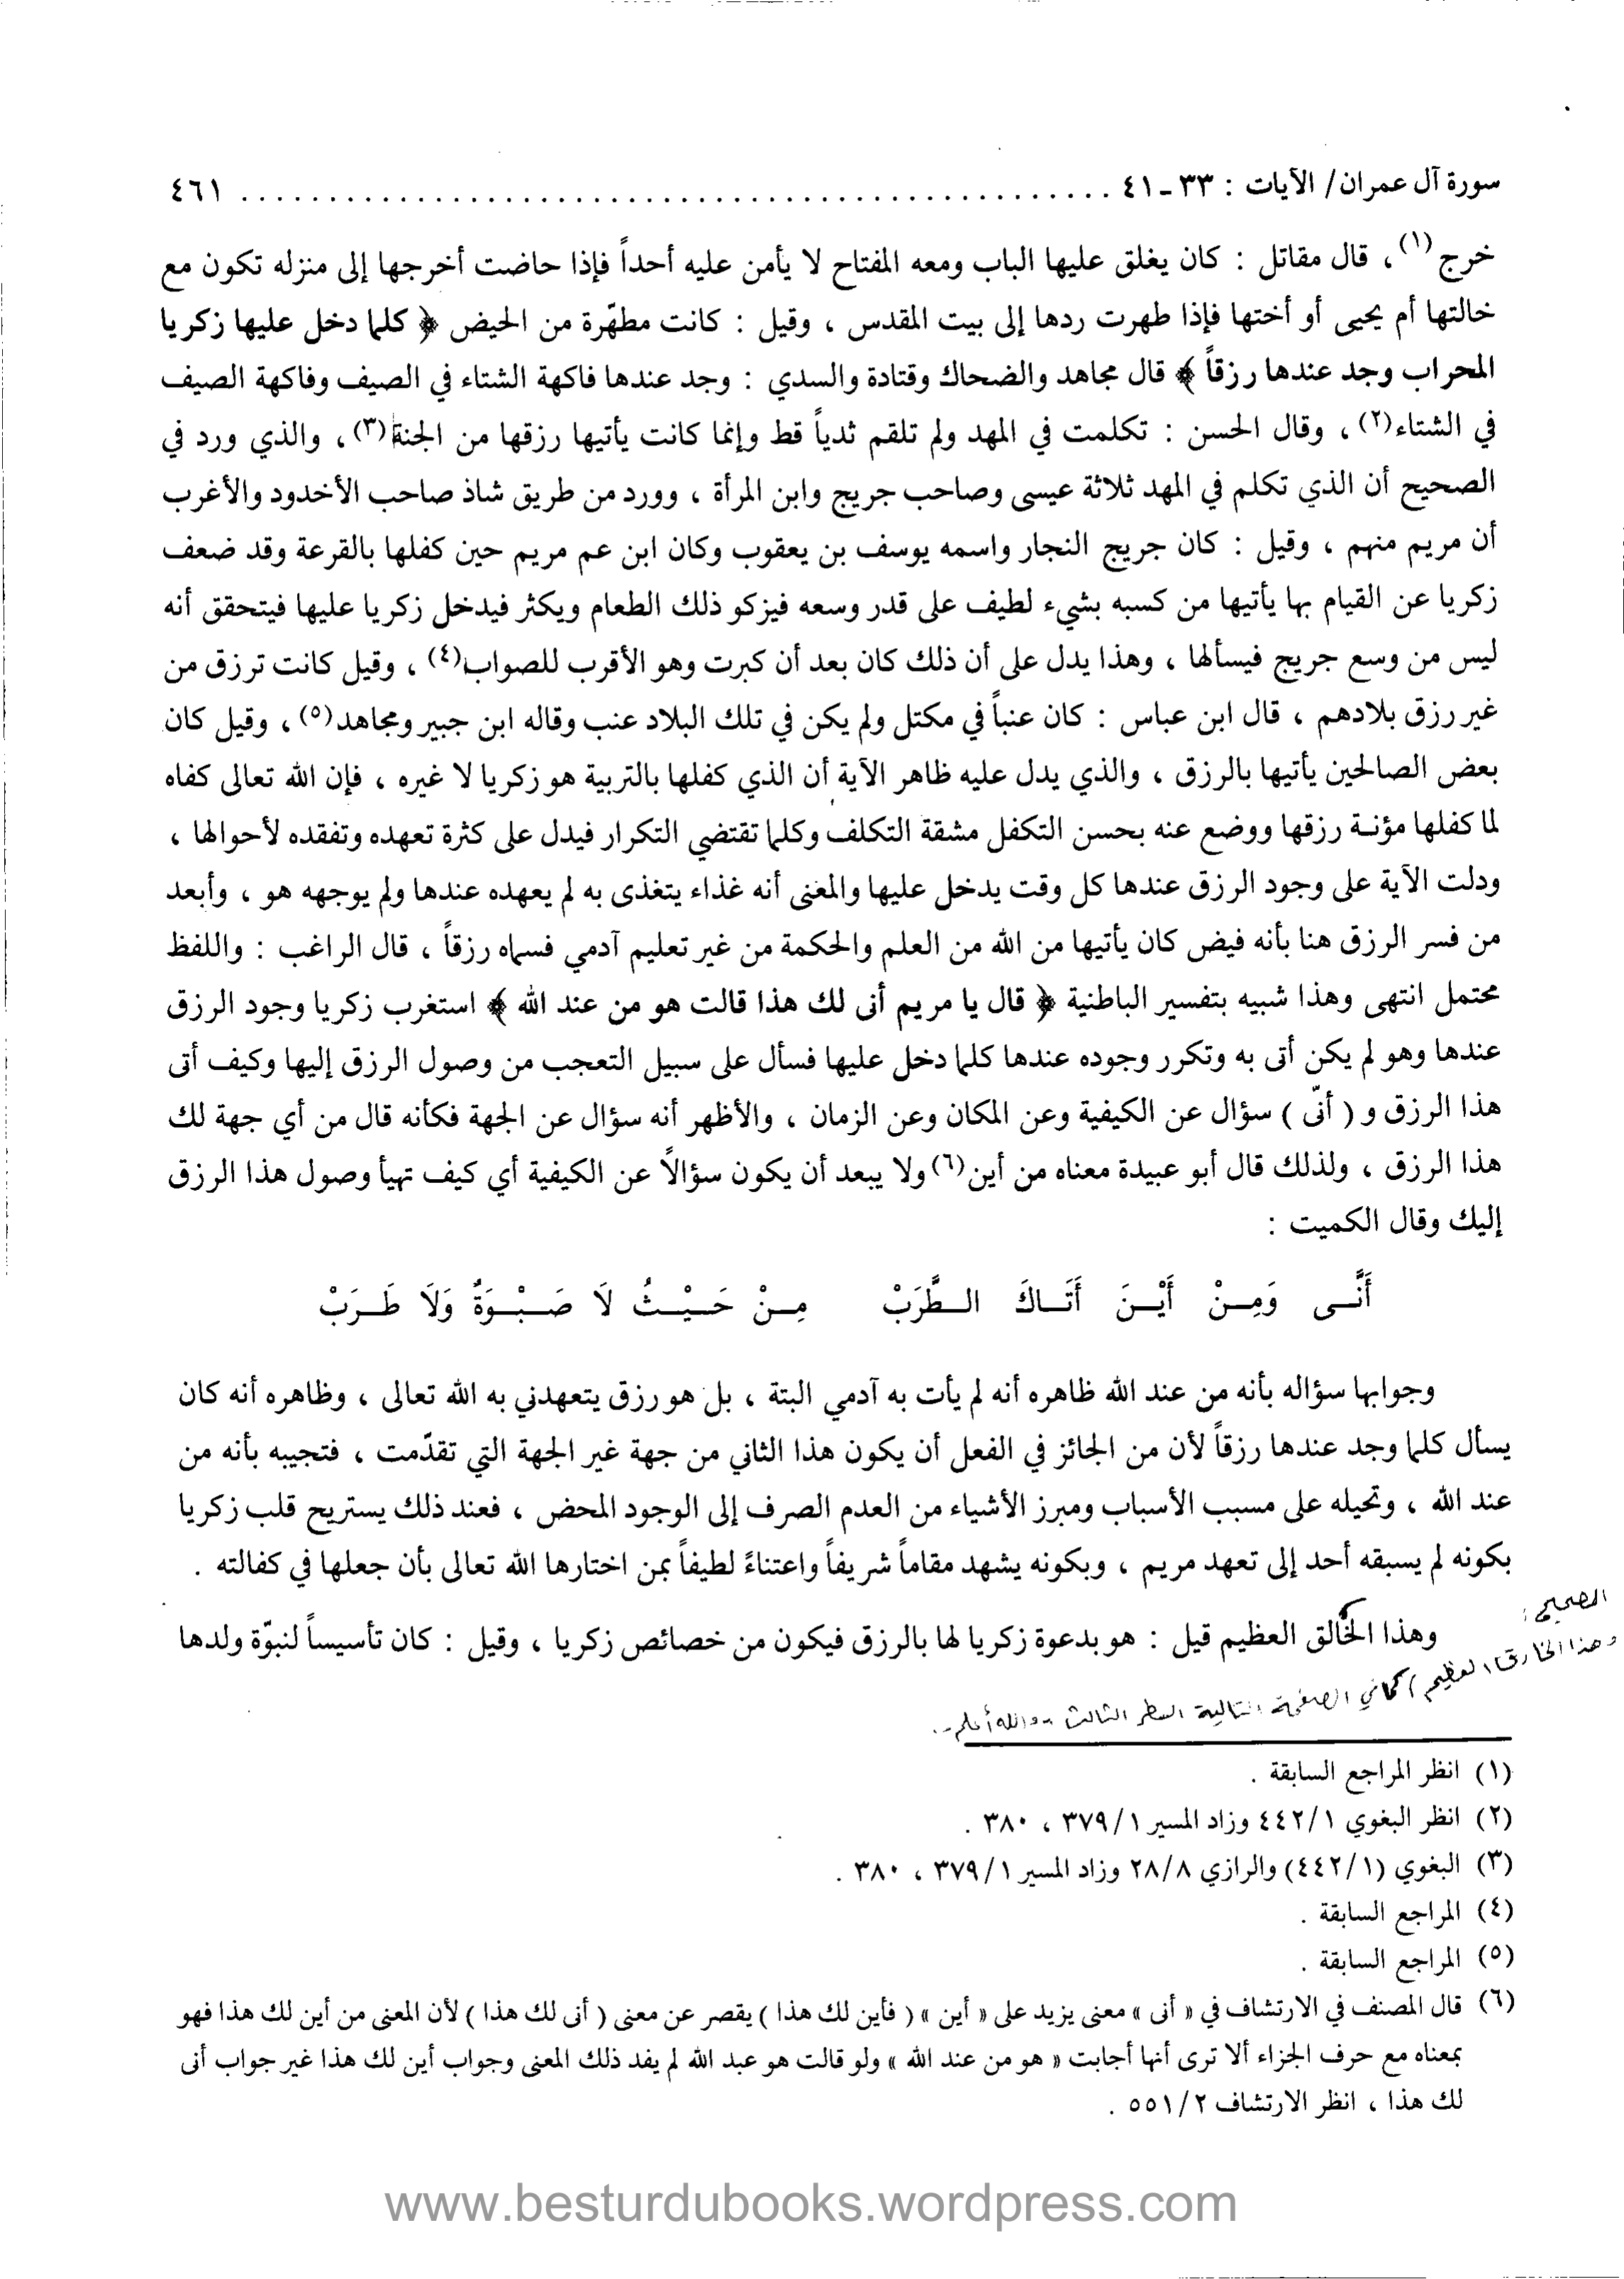 سورة آل عمران/ الآيات : ٣٣ـ٤١ .................................................. ٤٦١
خرج(١) ، قال مقاتل : كان يغلق عليها الباب ومعه المفتاح لا يأمن عليه أحداً فإذا حاضت أخرجها إلى منزله تكون مع
خالتها أم يحيى أو أختها فإذا طهرت ردها إلى بيت المقدس ، وقيل : كانت مطهّرة من الحيض ﴿ كلما دخل عليها زكريا
المحراب وجد عندها رزقاً ﴾ قال مجاهد والضحاك وقتادة والسدي : وجد عندها فاكهة الشتاء في الصيف وفاكهة الصيف
في الشتاء(٢) ، وقال الحسن : تكلمت في المهد ولم تلقم ثدياً قط وإنما كانت يأتيها رزقها من الجنة(٣) ، والذي ورد في
الصحيح أن الذي تكلم في المهد ثلاثة عيسى وصاحب جريج وابن المرأة ، وورد من طريق شاذ صاحب الأخدود والأغرب
أن مريم منهم ، وقيل : كان جريج النجار واسمه يوسف بن يعقوب وكان ابن عم مريم حين كفلها بالقرعة وقد ضعف
زكريا عن القيام بها يأتيها من كسبه بشيء لطيف على قدر وسعه فيزكو ذلك الطعام ويكثر فيدخل زكريا عليها فيتحقق أنه
ليس من وسع جريج فيسألها ، وهذا يدل على أن ذلك كان بعد أن كبرت وهو الأقرب للصواب(٤) ، وقيل كانت ترزق من
غير رزق بلادهم ، قال ابن عباس : كان عنباً في مكتل ولم يكن في تلك البلاد عنب وقاله ابن جبير ومجاهد(٥) ، وقيل كان
بعض الصالحين يأتيها بالرزق ، والذي يدل عليه ظاهر الآية أن الذي كفلها بالتربية هو زكريا لا غيره ، فإن الله تعالى كفاه
لما كفلها مؤنـة رزقها ووضع عنه بحسن التكفل مشقة التكلف وكلما تقتضي التكرار فيدل على كثرة تعهده وتفقده لأحوالها ،
ودلت الآية على وجود الرزق عندها كل وقت يدخل عليها والمعنى أنه غذاء يتغذى به لم يعهده عندها ولم يوجهه هو ، وأبعد
من فسر الرزق هنا بأنه فيض كان يأتيها من الله من العلم والحكمة من غير تعليم آدمي فسماه رزقاً ، قال الراغب : واللفظ
محتمل انتهى وهذا شبيه بتفسير الباطنية ﴿ قال يا مريم أنى لك هذا قالت هو من عند الله ﴾ استغرب زكريا وجود الرزق
عندها وهو لم يكن أتى به وتكرر وجوده عندها كلما دخل عليها فسأل على سبيل التعجب من وصول الرزق إليها وكيف أتى
هذا الرزق و ( أنّى ) سؤال عن الكيفية وعن المكان وعن الزمان ، والأظهر أنه سؤال عن الجهة فكأنه قال من أي جهة لك
هذا الرزق ، ولذلك قال أبو عبيدة معناه من أين(٦) ولا يبعد أن يكون سؤالاً عن الكيفية أي كيف تهيأ وصول هذا الرزق
إليك وقال الكميت :
أَنَّـى وَمِـنْ أَيْـنَ أَتَـاكَ الـطَّرَبْ مِـنْ حَـيْـثُ لَا صَـبْـوَةٌ وَلَا طَـرَبْ
وجوابها سؤاله بأنه من عند الله ظاهره أنه لم يأت به آدمي البتة ، بل هو رزق يتعهدني به الله تعالى ، وظاهره أنه كان
يسأل كلما وجد عندها رزقاً لأن من الجائز في الفعل أن يكون هذا الثاني من جهة غير الجهة التي تقدّمت ، فتجيبه بأنه من
عند الله ، وتحيله على مسبب الأسباب ومبرز الأشياء من العدم الصرف إلى الوجود المحض ، فعند ذلك يستريح قلب زكريا
بكونه لم يسبقه أحد إلى تعهد مريم ، وبكونه يشهد مقاماً شريفاً واعتناءً لطيفاً بمن اختارها الله تعالى بأن جعلها في كفالته .
الصحيح :
وهذا الخالق العظيم قيل : هو بدعوة زكريا لها بالرزق فيكون من خصائص زكريا ، وقيل : كان تأسيساً لنبوّة ولدها
وهذا الخارق العظيم / كما في الصفحة التالية السطر الثالث -- والله أعلم --
(١) انظر المراجع السابقة .
(٢) انظر البغوي ٤٤٢/١ وزاد المسير ٣٧٩/١ ، ٣٨٠ .
(٣) البغوي (٤٤٢/١) والرازي ٢٨/٨ وزاد المسير ٣٧٩/١ ، ٣٨٠ .
(٤) المراجع السابقة .
(٥) المراجع السابقة .
(٦) قال المصنف في الارتشاف في « أنى » معنى يزيد على « أين » ( فأين لك هذا ) يقصر عن معنى ( أنى لك هذا ) لأن المعنى من أين لك هذا فهو
بمعناه مع حرف الجزاء ألا ترى أنها أجابت « هو من عند الله » ولو قالت هو عبد الله لم يفد ذلك المعنى وجواب أين لك هذا غير جواب أنى
لك هذا ، انظر الارتشاف ٥٥١/٢ .
www.besturdubooks.wordpress.com